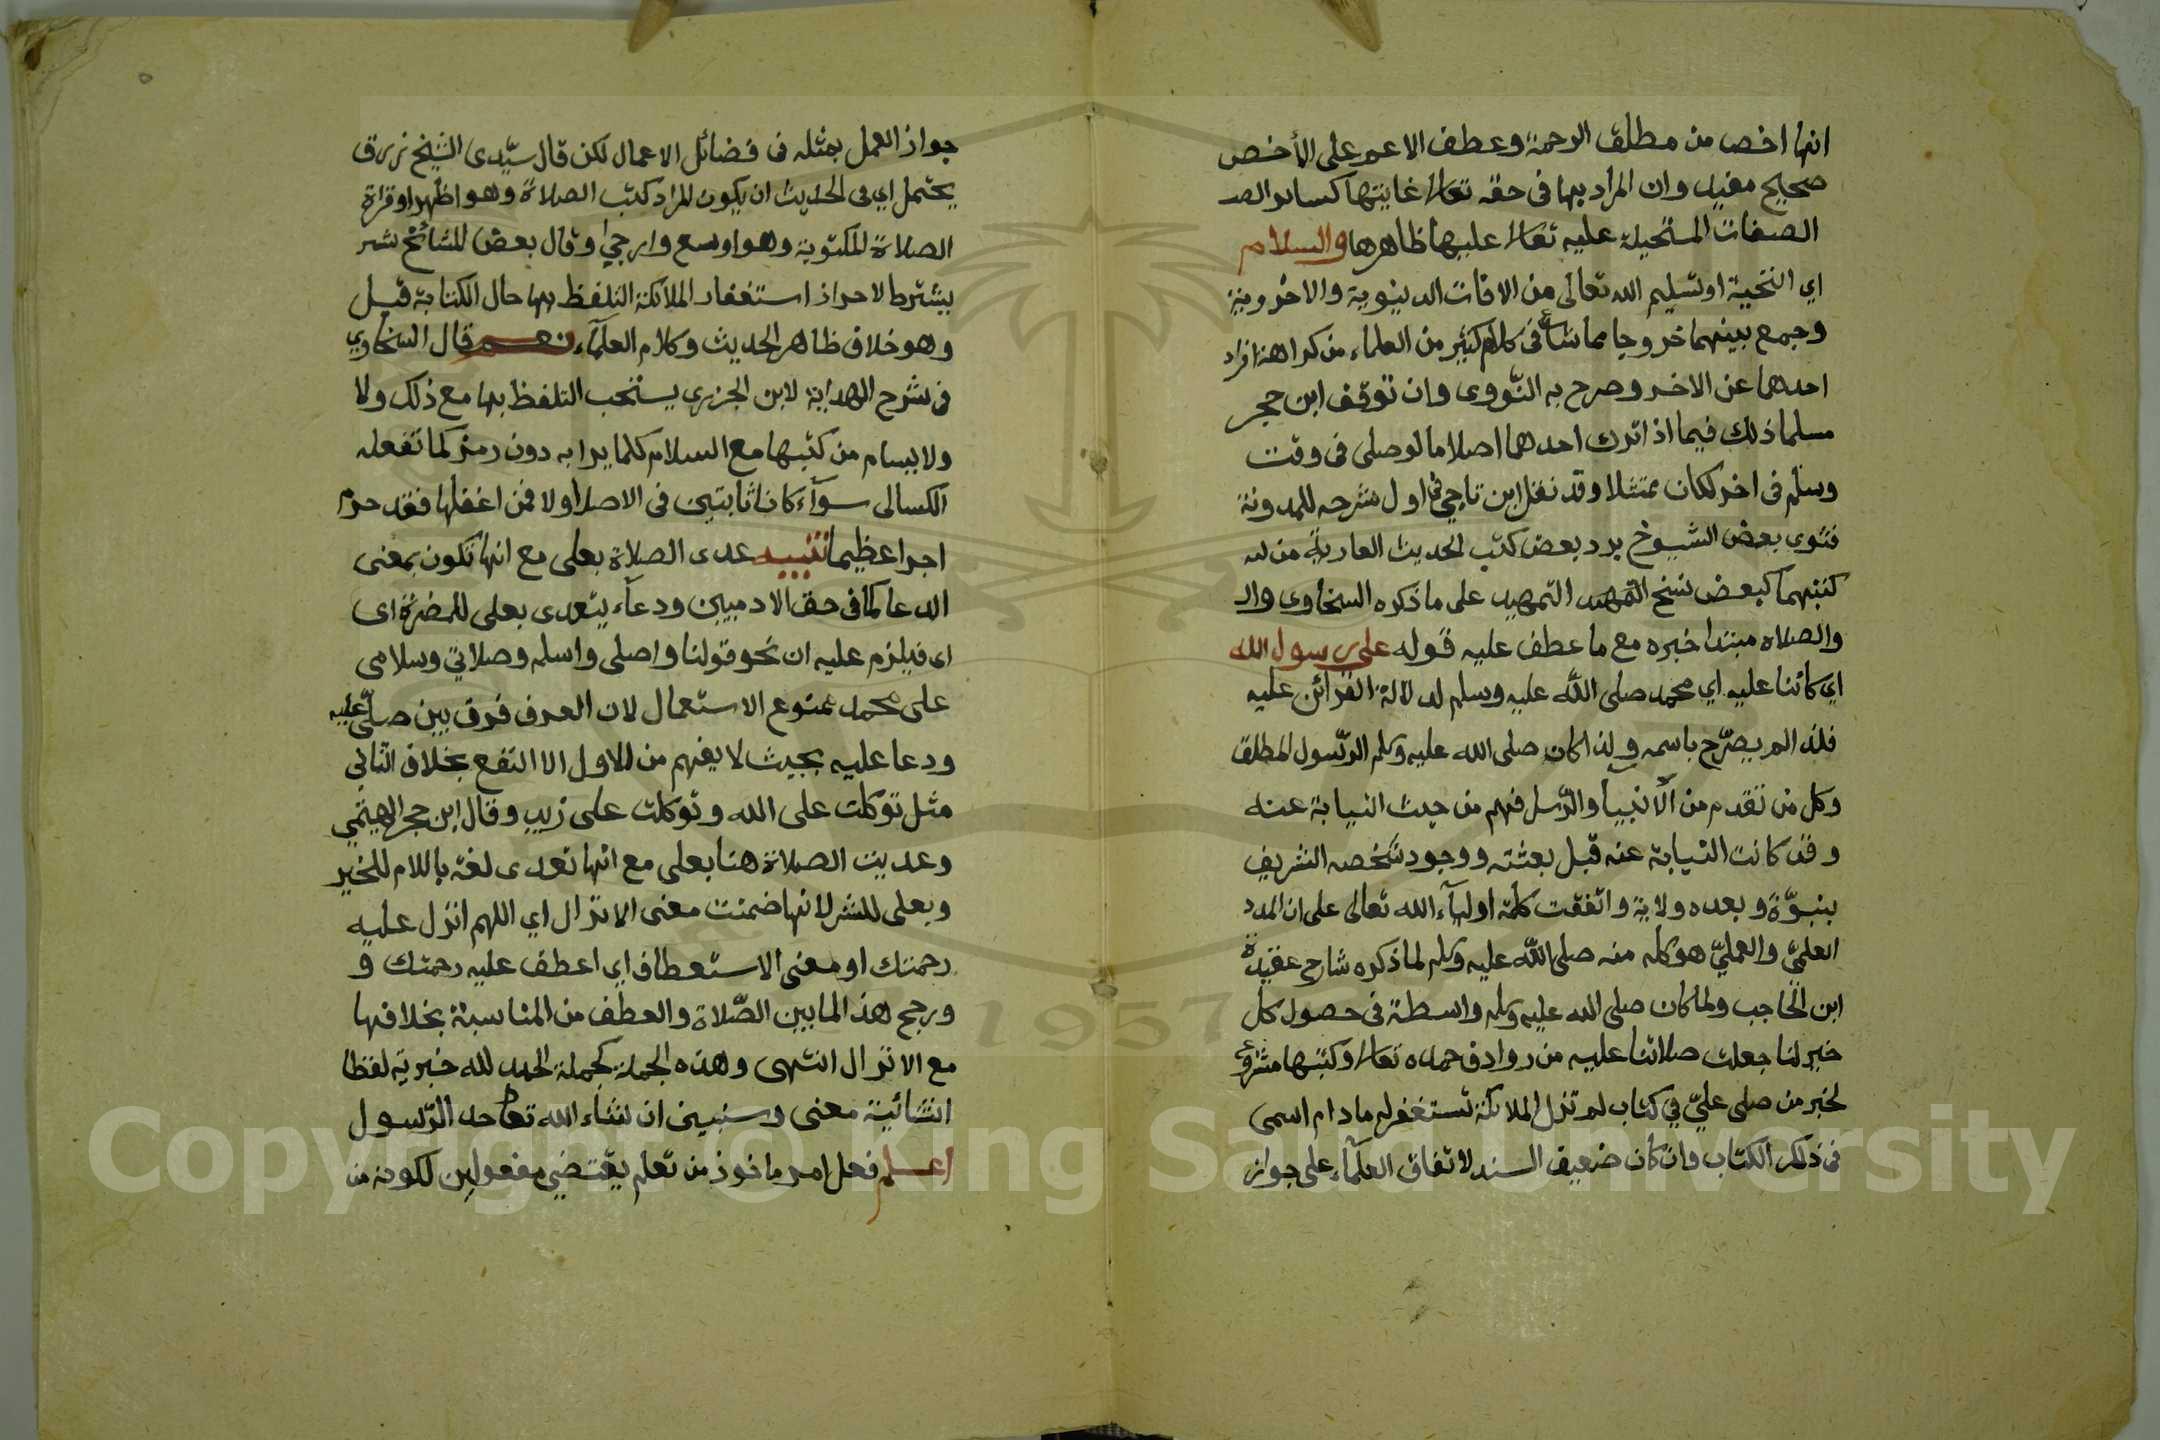 انها اخص من مطلق الرحمة وعطف الاعم على الأخص
صحيح مفيد وان المراد بها فى حقه تعالى غايتها كسائر الصـ
الصفات المستحيلة عليه تعالى عليها ظاهرها والسلام
اي التحية او تسليم الله تعالى من الافات الدنيوية والاخروية
وجمع بينهما خروجا مما شاع فى كلام كثير من العلماء من كراهة افراد
احدهما عن الاخر وصرح به النّووى وان توقف ابن حجر
مسلما ذلك فيما اذا ترك احدهما اصلا ما لو صلى فى وقت
وسلم فى اخر لكان ممتثلا وقد نقل ابن ناجي فى اول شرحه للمدونة
فتوى بعض الشيوخ برد بعض كتب الحديث العارية من
كتبهما كبعض نسخ التمهيد التمهيد على ما ذكره السخاوى وال
والصلاه مبتدا خبره مع ما عطف عليه قوله على رسول الله
اي كائنا عليه اي محمد صلى اللّه عليه وسلم لدلالة القرائن عليه
فلذا لم يصرّح باسمه ولذا كان صلى الله عليه وسلم الرّسول المطلق
وكل من تقدم من الانبيا والرّسل فهم من حيث النيابة عنه
وقد كانت النيابة عنه قبل بعثته ووجود شخصه الشريف
بنبوّة وبعده ولاية واتفقت كلمة اولياء الله تعالى على ان المدد
العلميّ والعمليّ هو كله منه صلى اللّه عليه وسلم لما ذكره شارح عقيدة
ابن الحاجب ولما كان صلى الله عليه وسلم واسطة فى حصول كل
خير لنا جعلت صلاتنا عليه من روادف حمده تعالى وكتبها مشروع
لخبر من صلى عليّ في كتاب لم تزل الملائكة تستغفر له ما دام اسمى
فى ذلك الكتاب وان كان ضعيف السند لاتفاق العلماء على جواز
جواز العمل بمثله فى فضائل الاعمال لكن قال سيّدى الشيخ زروق
يحتمل اي فى الحديث ان يكون المراد كتب الصلاة وهو اظهر او قراة
الصلاة المكتوبة وهو اوسع وارجي وقال بعض المشائخ
يشترط لاحراز استغفار الملائكة التلفظ بها حال الكتابة قيل
وهو خلاف ظاهر الحديث وكلام العلماء نعم قال السخاوي
فى شرح الهداية لابن الجزرى يستحب التلفظ بها مع ذلك ولا
ولا يسام من كتبها مع السلام كلما يرا به دون رمز كما تفعله
الكسالى سوآء كان ثابتين فى الاصل اولا فمن اغفلها فقد حرم
اجرا عظيما تنبيه عدى الصلاة بعلى مع انها تكون بمعنى
الدعا كما فى حق الادميين ودعآء يتعدى بعلى للمضرة اى
اى فيلزم عليه ان نحو قولنا واصلى واسلم وصلاتي وسلامى
على محمد ممنوع الاستعمال لان العرف فرق بين صلّى عليه
ودعا عليه بحيث لا يفهم من الاول الا النفع بخلاف الثاني
مثل توكلت على الله وتوكلت على زيد وقال ابن حجر الهيتمي
وعديت الصلاة هنا بعلى مع انها تعدى لغة باللام للخير
وبعلى للشر لانها ضمنت معنى الانزال اي اللهم انزل عليه
رحمتك او معنى الاستعطاف اي اعطف عليه رحمتك و
ورجح هذا لما بين الصّلاة والعطف من المناسبة بخلافها
مع الانزال انتهى وهذه الجملة كجملة الحمد لله خبرية لفظا
انشائية معنى وسنبين ان شاء الله تعالى حد الرّسول
اعلم فعل امر ماخوذ من تعلم يقتضي مفعولين لكونه من
Copyright © King Saud University
1957